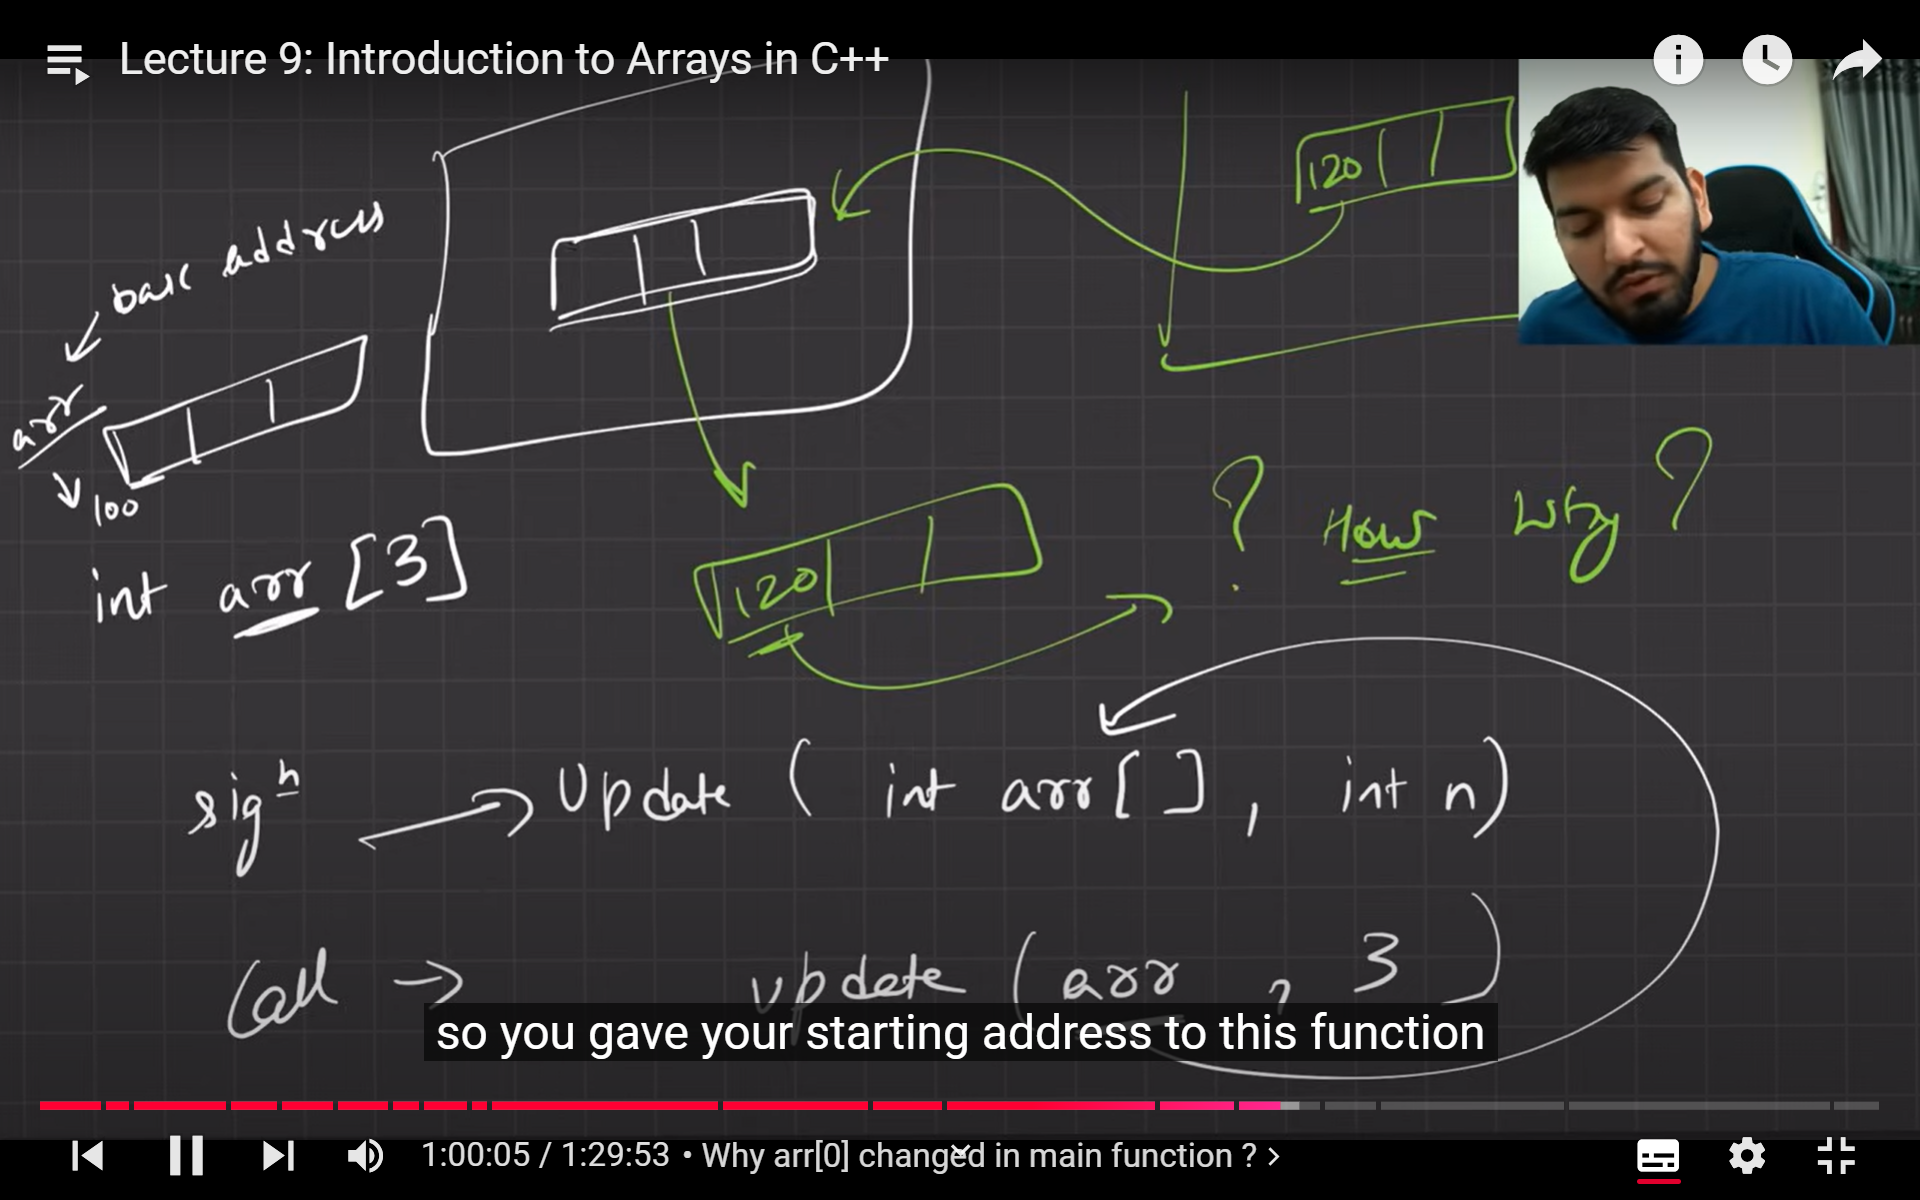 Lecture 9: Introduction to Arrays in C++
120
base address
arr
100
int arr [3]
120
? How Why ?
sigⁿ → Update ( int arr [ ] , int n)
Call → update ( arr , 3 )
so you gave your starting address to this function
1:00:05 / 1:29:53 • Why arr[0] changed in main function ? >